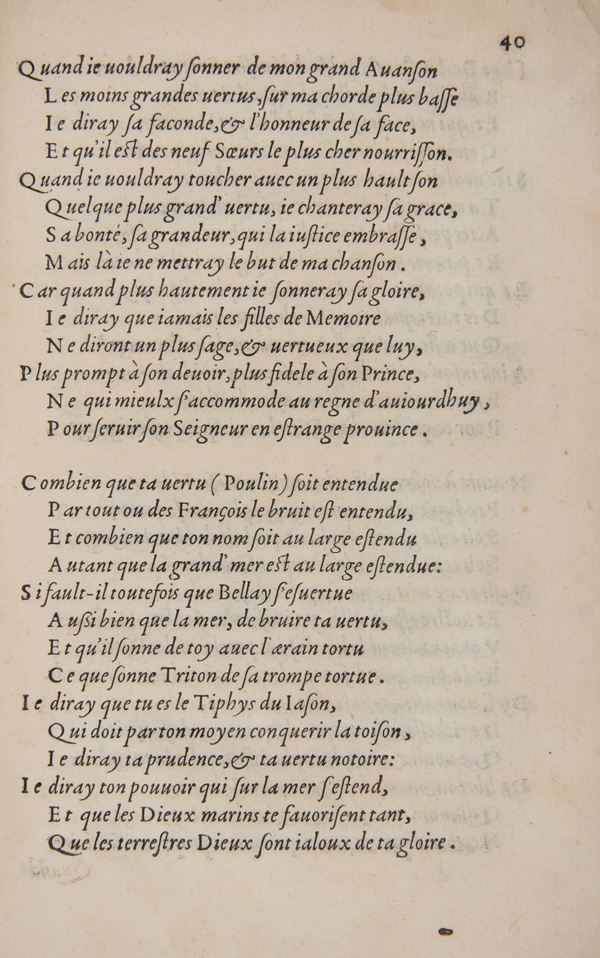 40
Quand ie uouldray ſonner de mon grand Auanſon
Les moins grandes uertus, ſur ma chorde plus baſſe
Ie diray ſa faconde, & l'honneur de ſa face,
Et qu'il eſt des neuf Sœurs le plus cher nourriſſon.
Quand ie uouldray toucher auec un plus hault ſon
Quelque plus grand' uertu, ie chanteray ſa grace,
Sa bonté, ſa grandeur, qui la iuſtice embraſſe,
Mais là ie ne mettray le but de ma chanſon.
Car quand plus hautement ie ſonneray ſa gloire,
Ie diray que iamais les filles de Memoire
Ne diront un plus ſage, & uertueux que luy,
Plus prompt à ſon deuoir, plus fidele à ſon Prince,
Ne qui mieulx ſ'accommode au regne d'auiourdhuy,
Pour ſeruir ſon Seigneur en eſtrange prouince.
Combien que ta uertu (Poulin) ſoit entendue
Par tout ou des François le bruit eſt entendu,
Et combien que ton nom ſoit au large eſtendu
Autant que la grand' mer eſt au large eſtendue:
Si fault-il toutefois que Bellay ſ'eſuertue
Auſsi bien que la mer, de bruire ta uertu,
Et qu'il ſonne de toy auec l'ærain tortu
Ce que ſonne Triton de ſa trompe tortue.
Ie diray que tu es le Tiphys du Iaſon,
Qui doit par ton moyen conquerir la toiſon,
Ie diray ta prudence, & ta uertu notoire:
Ie diray ton pouuoir qui ſur la mer ſ'eſtend,
Et que les Dieux marins te fauoriſent tant,
Que les terreſtres Dieux ſont ialoux de ta gloire.